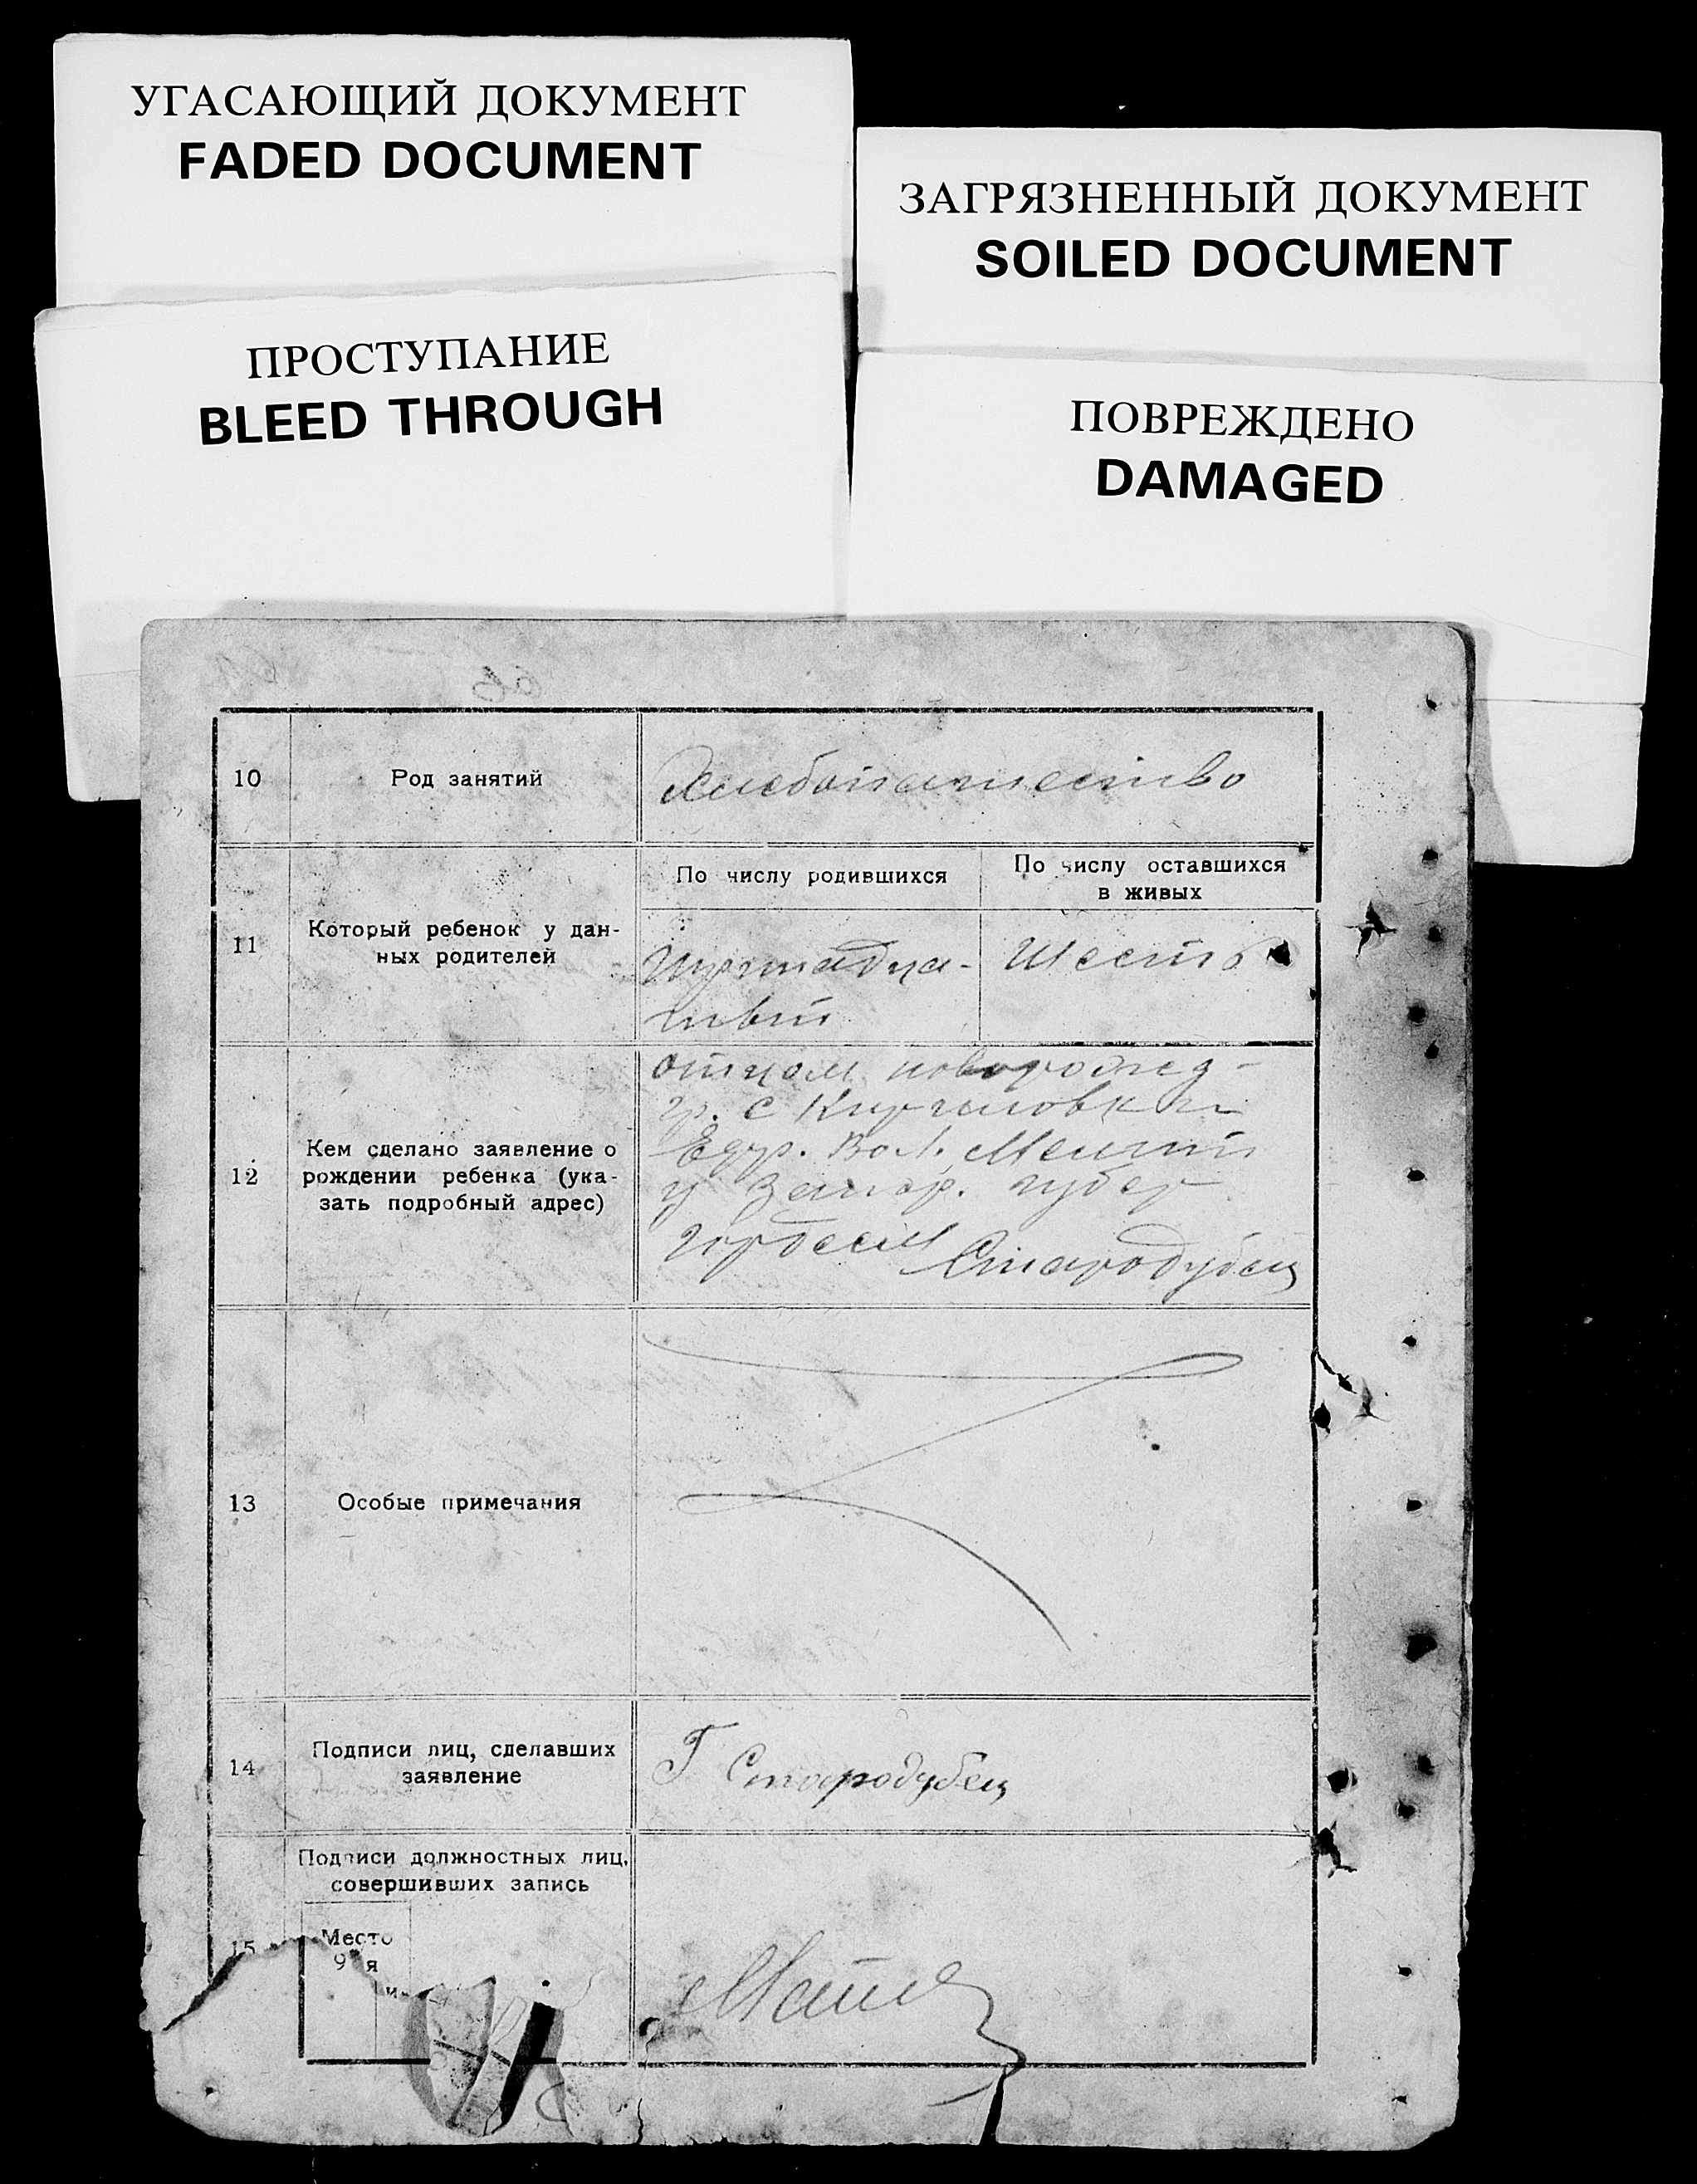 УГАСАЮЩИЙ ДОКУМЕНТ
FADED DOCUMENT
ЗАГРЯЗНЕННЫЙ ДОКУМЕНТ
SOILED DOCUMENT
ПРОСТУПАНИЕ
BLEED THROUGH
ПОВРЕЖДЕНО
DAMAGED
10
Род занятий
Хлебопашество
11
Который ребенок у дан-
ных родителей
По числу родившихся
По числу оставшихся
в живых
Шесть
12
Кем сделано заявление о
рождении ребенка (ука-
зать подробный адрес)
отцом новорожд-
гр. с
Вол.
у Запор. губер
Гордеем Стародубец
13
Особые примечания
14
Подписи лиц, сделавших
заявление
Г Стародубец
15
Подписи должностных лиц,
совершивших запись
Место